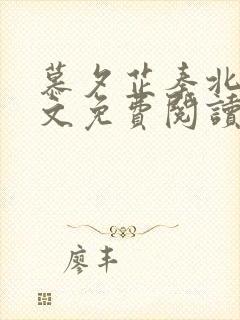 慕夕芷秦北
文免費閱讀
廖丰